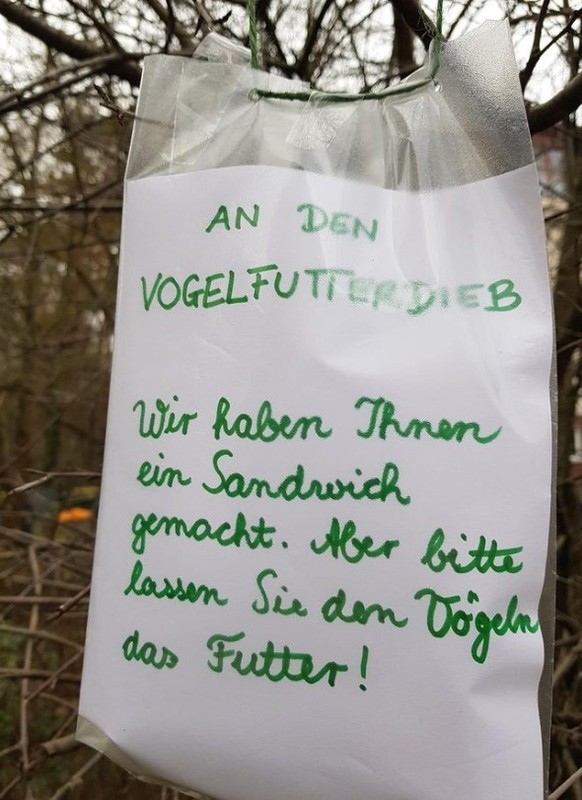 AN DEN
VOGELFUTTERDIEB
Wir haben Ihnen
ein Sandwich
gemacht. Aber bitte
lassen Sie den Vögeln
das Futter!